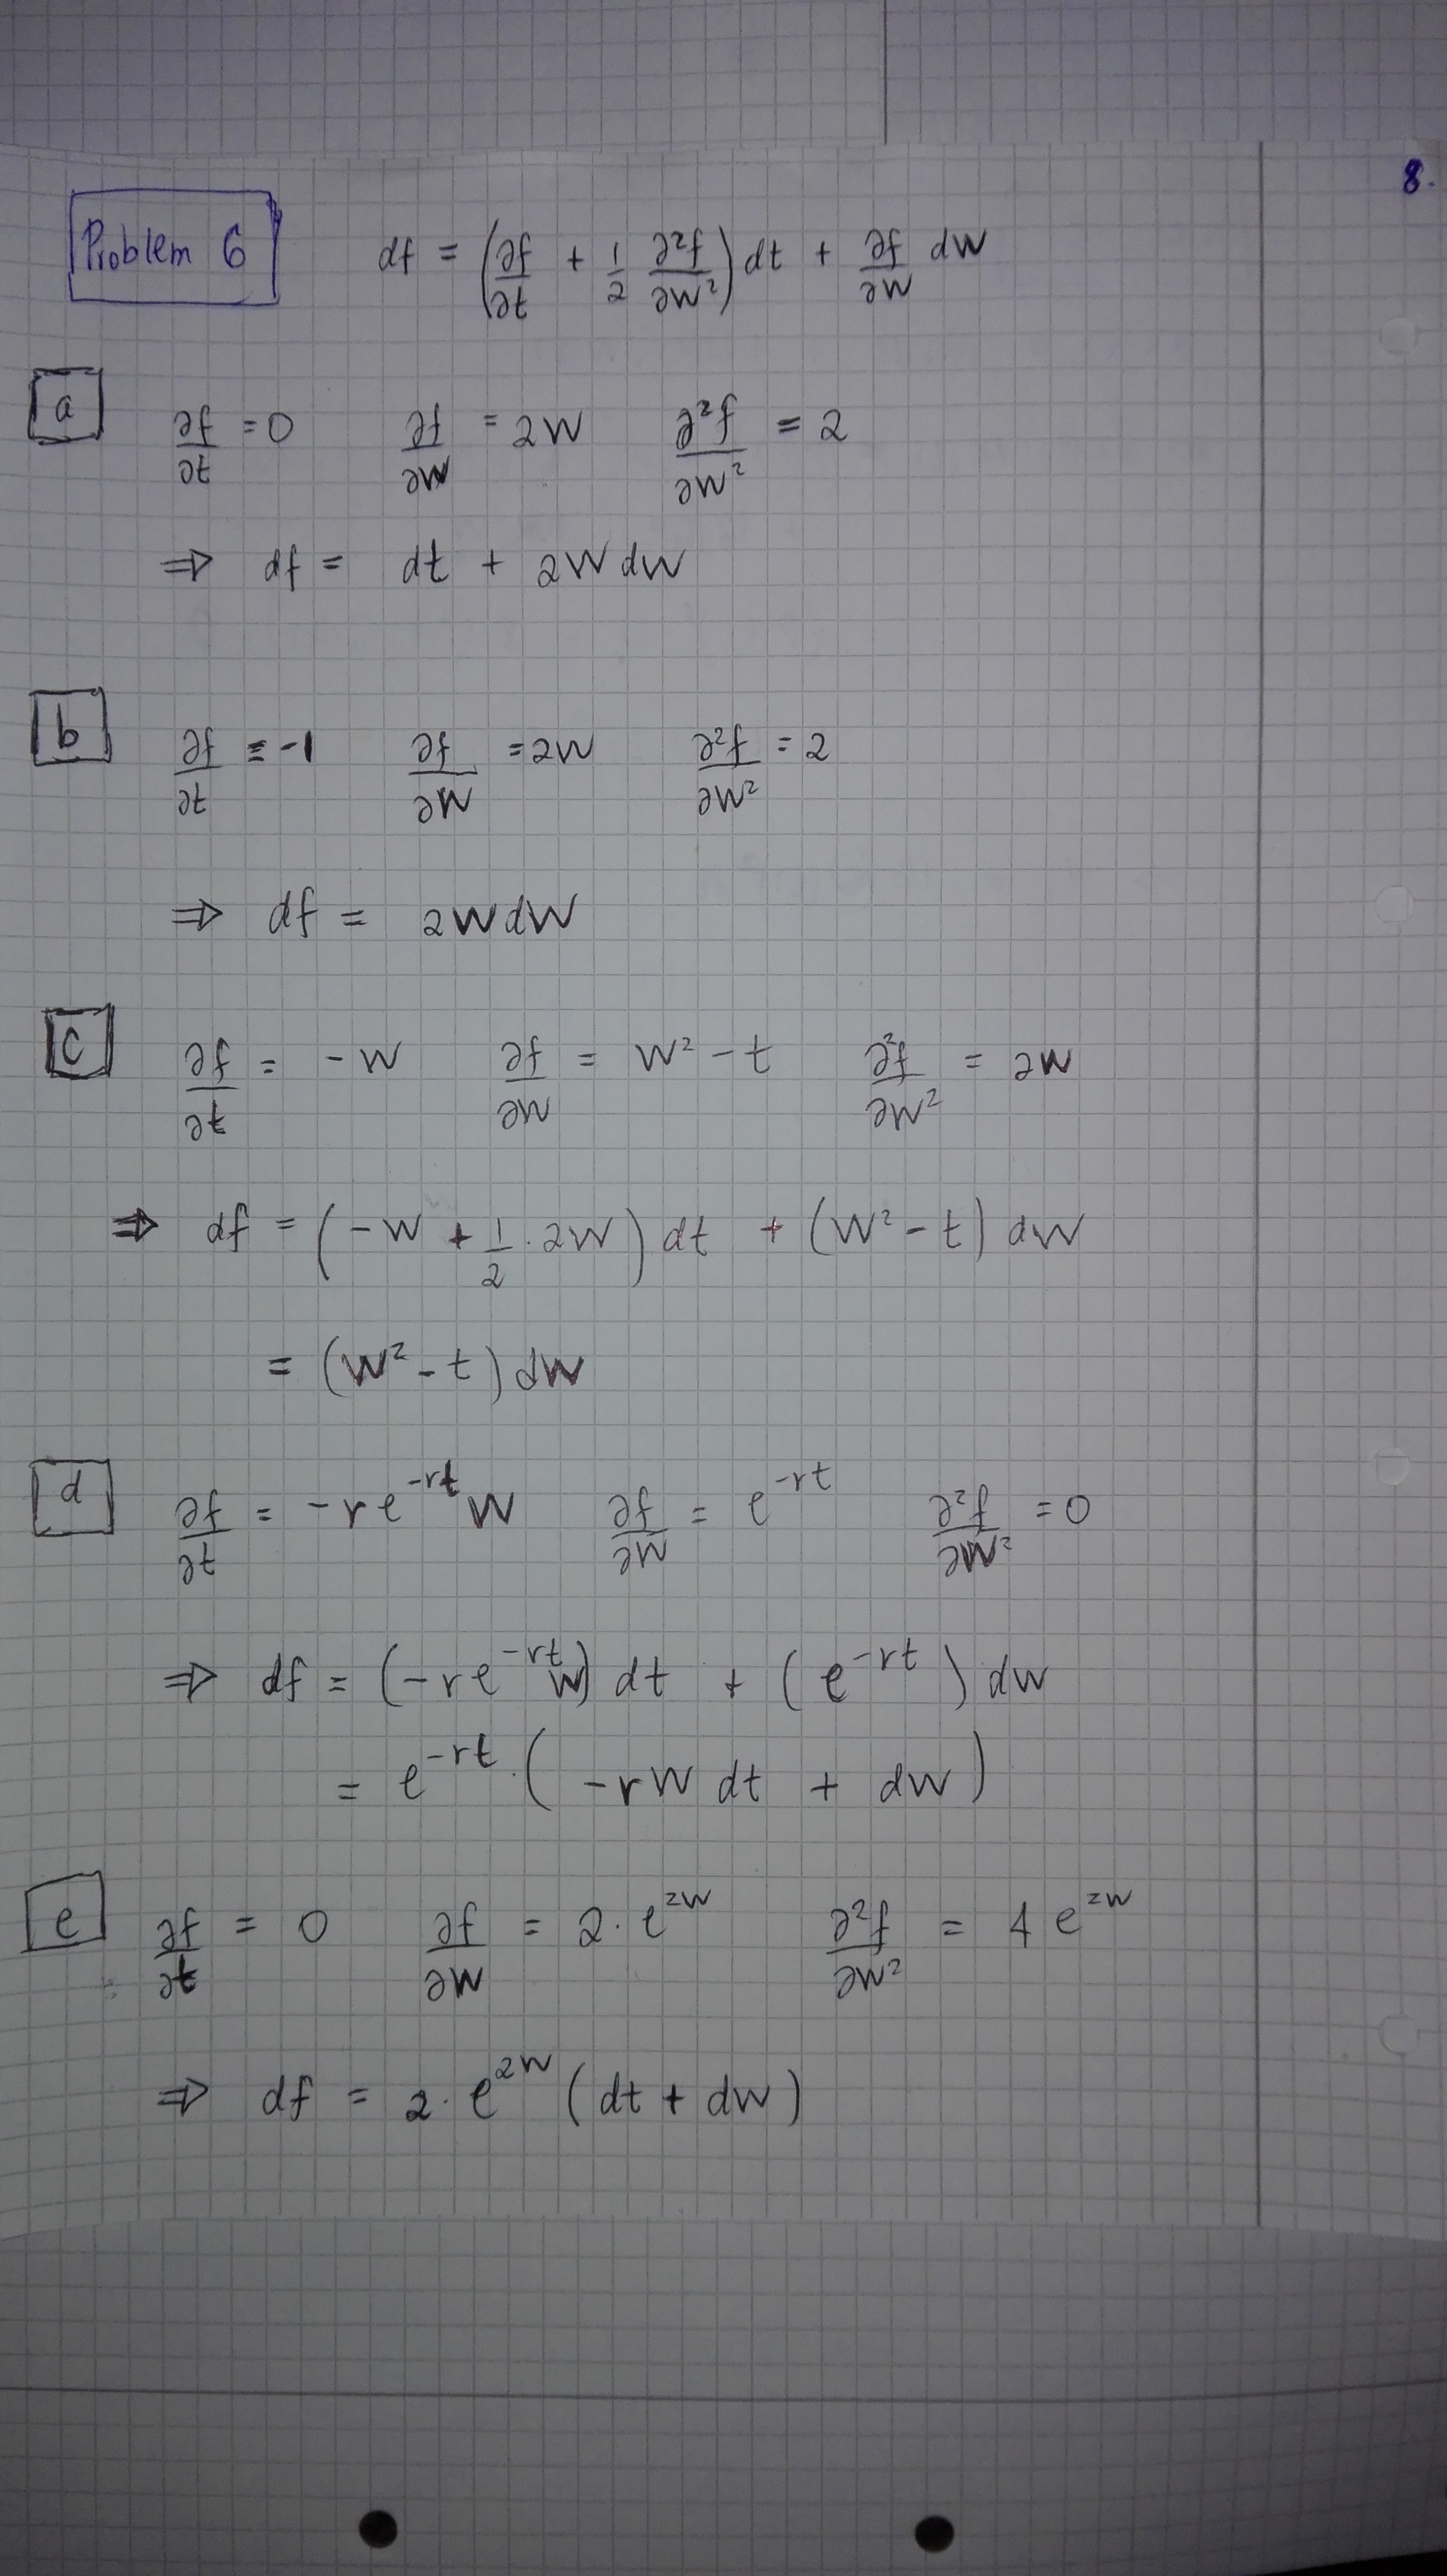 8.
Problem 6 df = (∂f/∂t + 1/2 ∂²f/∂W²) dt + ∂f/∂W dW
a ∂f/∂t = 0 ∂f/∂W = 2W ∂²f/∂W² = 2
⇒ df = dt + 2W dW
b ∂f/∂t = -1 ∂f/∂W = 2W ∂²f/∂W² = 2
⇒ df = 2W dW
c ∂f/∂t = -W ∂f/∂W = W² - t ∂²f/∂W² = 2W
⇒ df = (-W + 1/2 · 2W) dt + (W² - t) dW
= (W² - t) dW
d ∂f/∂t = -re^(-rt) W ∂f/∂W = e^(-rt) ∂²f/∂W² = 0
⇒ df = (-re^(-rt) W) dt + (e^(-rt)) dW
= e^(-rt) · (-rW dt + dW)
e ∂f/∂t = 0 ∂f/∂W = 2 · e^(2W) ∂²f/∂W² = 4 e^(2W)
⇒ df = 2 · e^(2W) (dt + dW)